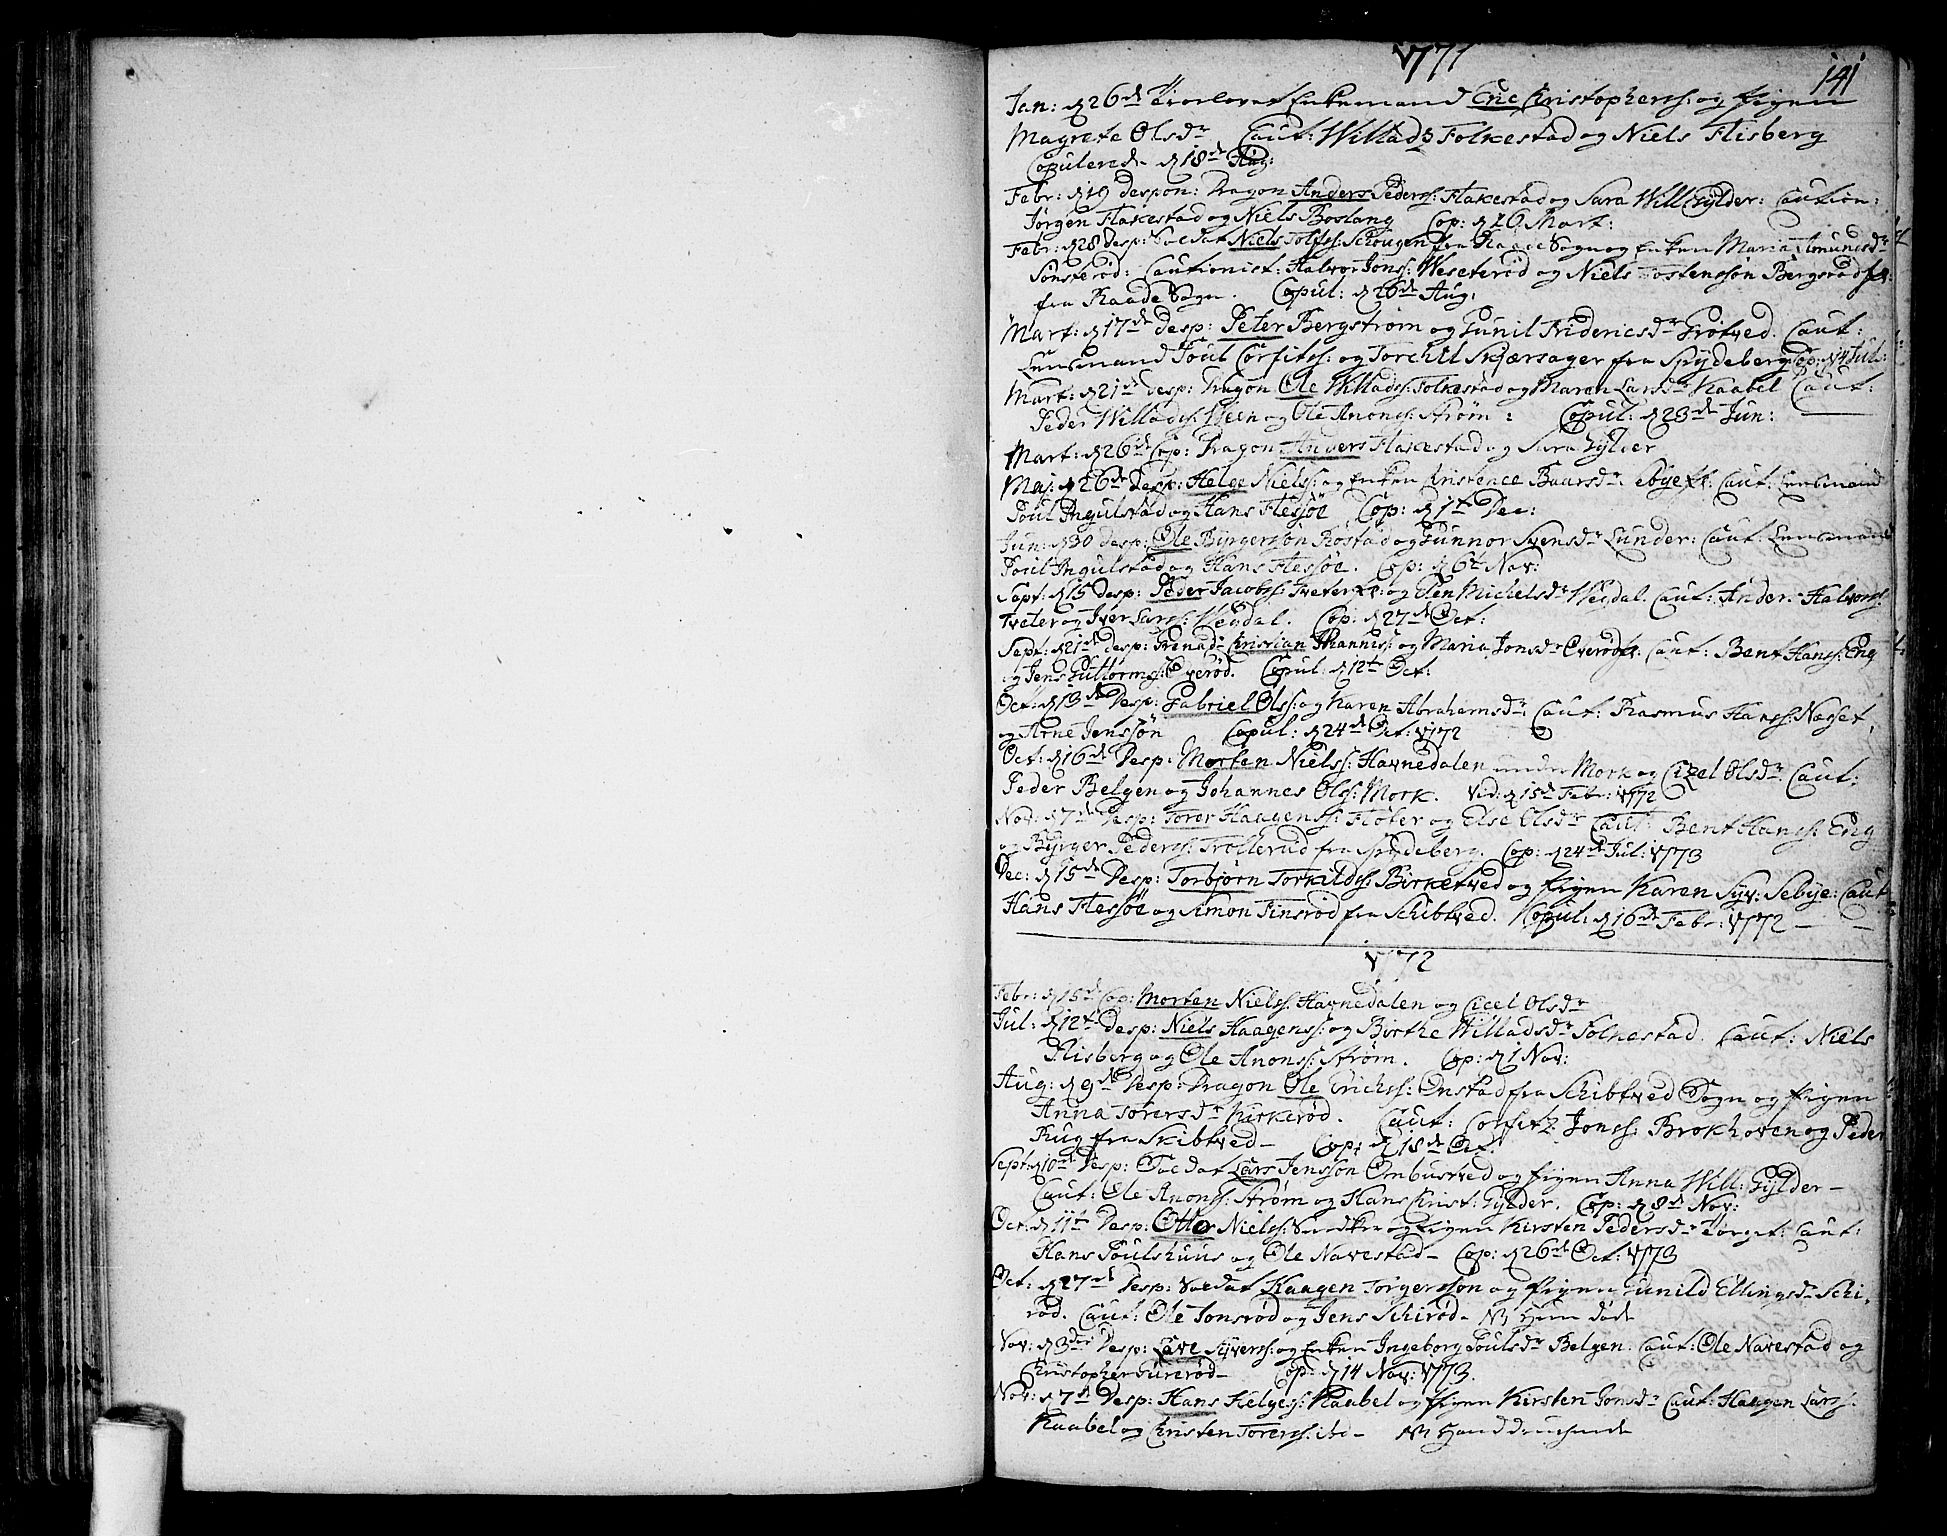 1771
141
Jan: d 26de Trolovet Enkemand Eric Christophers: og Pigen
Magrete Olsdr Caut: Willads Folkestad og Niels Flisberg
Copulerede d 18de Aug:
Febr: d 19 despon: Dragon Anders Peders: Flakestad og Sara Will: Gylder: Caution:
Jørgen Flakestad og Niels Boslang Cop: d 26 Mart:
Febr: d 28 Desp: Soldat Niels Tolfss: Schougen fra Raade Sogn og Enken Maria Amundsdr
Sønsterød: Cautionist: Halvor Jons: Weseterød og Niels Tostenssøn Bergerød
fra Raade Sogn. Copul: d 26de Aug:
Mart: d 17de Desp: Peter Bergstrøm og Gunil Fridericsdr Grøtved. Caut:
Lensmand Poul Corfits: og Torchil Skjærsager fra Spydeberg Cop: d 4 Jul:
Mart: d 21de Desp: Dragon Ole Willads: Folkestad og Maren Larsdr Kaabel Caut:
Peder Willads: Steen og Ole Anons: Strøm: Copul: d 23de Jun:
Mart: d 26de Cop: Dragon Anders Flakestad og Sara Gylder
Maj: d 26de Desp: Helge Niels: og Enken Cristence Baarsdr Caut: Lensmand
Poul Ingulstad og Hans Flesjøe Cop: d 1te Dec:
Jun: d 30 desp: Ole Byrgersøn Rostad og Gunnor Svensdr Lunder: Caut: Lensmand
Poul Ingulstad og Hans Flesjøe. Cop: d 6te Nov:
Sept: d 15 desp: Peder Jacobs: Tveter og Elen Michelsdr Wegdal. Caut: Anders Halvors:
Tveter og Iver Lars: Wegdal. Cop: d 27de Oct:
Sept: d 21de desp: Grenad: Christian Johannis: og Maria Jonsdr Caut: Bent Hans: Eng
og Jens Guttorms: Copul d 12te Oct:
Oct: d 13de Desp: Gabriel Ols: og Karen Abrahamsdr Caut: Rasmus Hans: Nasset
og Arne Jenssøn Copul: d 24de Oct: 1772
Oct: d 16de Desp: Morten Niels: Havnedalen under Mork og Cicel Olsdr Caut:
Peder Belgen og Johannes Ols: Mork. Vid: d 15de Febr: 1772
Nov: d 7de Desp: Torer Haagens: Fløter og Else Olsdr Caut: Bent Hans: Eng
og Byrger Peders: Trollerud fra Spydeberg. Cop: d 24de Jul: 1773
Dec: d 15de Desp: Torbjørn Torkilds: Birketved og Pigen Karen Syv: Sebye: Caut
Hans Flesjøe og Simon Finsrød fra Schibtved. Kopul: d 16de Febr: 1772
1772
Febr: d 15de Cop: Morten Niels: Havnedalen og Cicel Olsdr
Jul: d 12te Desp: Niels Haagens: og Birthe Willadsdr Folkestad. Caut: Niels
Flisberg og Ole Anons: Strøm. Cop: d 1 Nov:
Aug: d 9de Desp: Dragon Ole Erichs: Onstad fra Schibtved Sogn og Pigen
Anna Torersdr Kirkerød. Caut: Corfitz Jons: Brokhoven og Peder
Rug fra Skibtved Cop: d 18de Oct:
Sept: d 10de Desp: Soldat Lars Jenssøn Ombustved og Pigen Anna Will: Gylder
Caut: Ole Anons: Strøm og Hans Christ: Gylder. Cop: d 8de Nov:
Oct: d 11te Desp: Otto Niels: og Pigen Kirsten Pedersdr Torget: Caut:
Hans Poulshuus og Ole Navestad Cop: d 26de Oct: 1773
Oct: d 27de Desp: Soldat Haagen Torgerssøn og Pigen Gunild Ellingsdr Schi-
rød. Caut: Ole Tonsrød og Jens Schirød NB Hun døde
Nov: d 3die Desp: Lave Syvers: og Enken Ingeborg Poulsdr Belgen. Caut: Ole Navestad og
Christopher Gurerød Cop: d 14 Nov: 1773.
Nov: d 7de Desp: Hans Helges: Kaabel og Pigen Kirsten Jonsdr Caut: Haagen Lars:
Kaabel og Christen Torers: ibd NB Hand druchnede